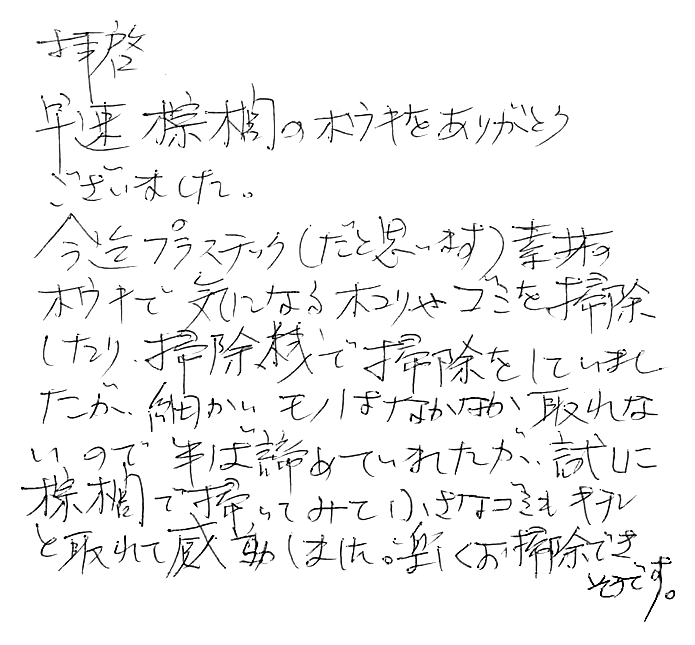 拝啓
早速棕櫚のホウキをありがとう
ございました。
今迄プラスチック(だと思います)素材の
ホウキで気になるホコリやゴミを掃除
したり、掃除機で掃除をしていまし
たが、細かいモノはなかなか取れな
いので半ば諦めていましたが、試しに
棕櫚で掃いてみて小さなゴミもキチン
と取れて感動しました。楽しくお掃除でき
そうです。